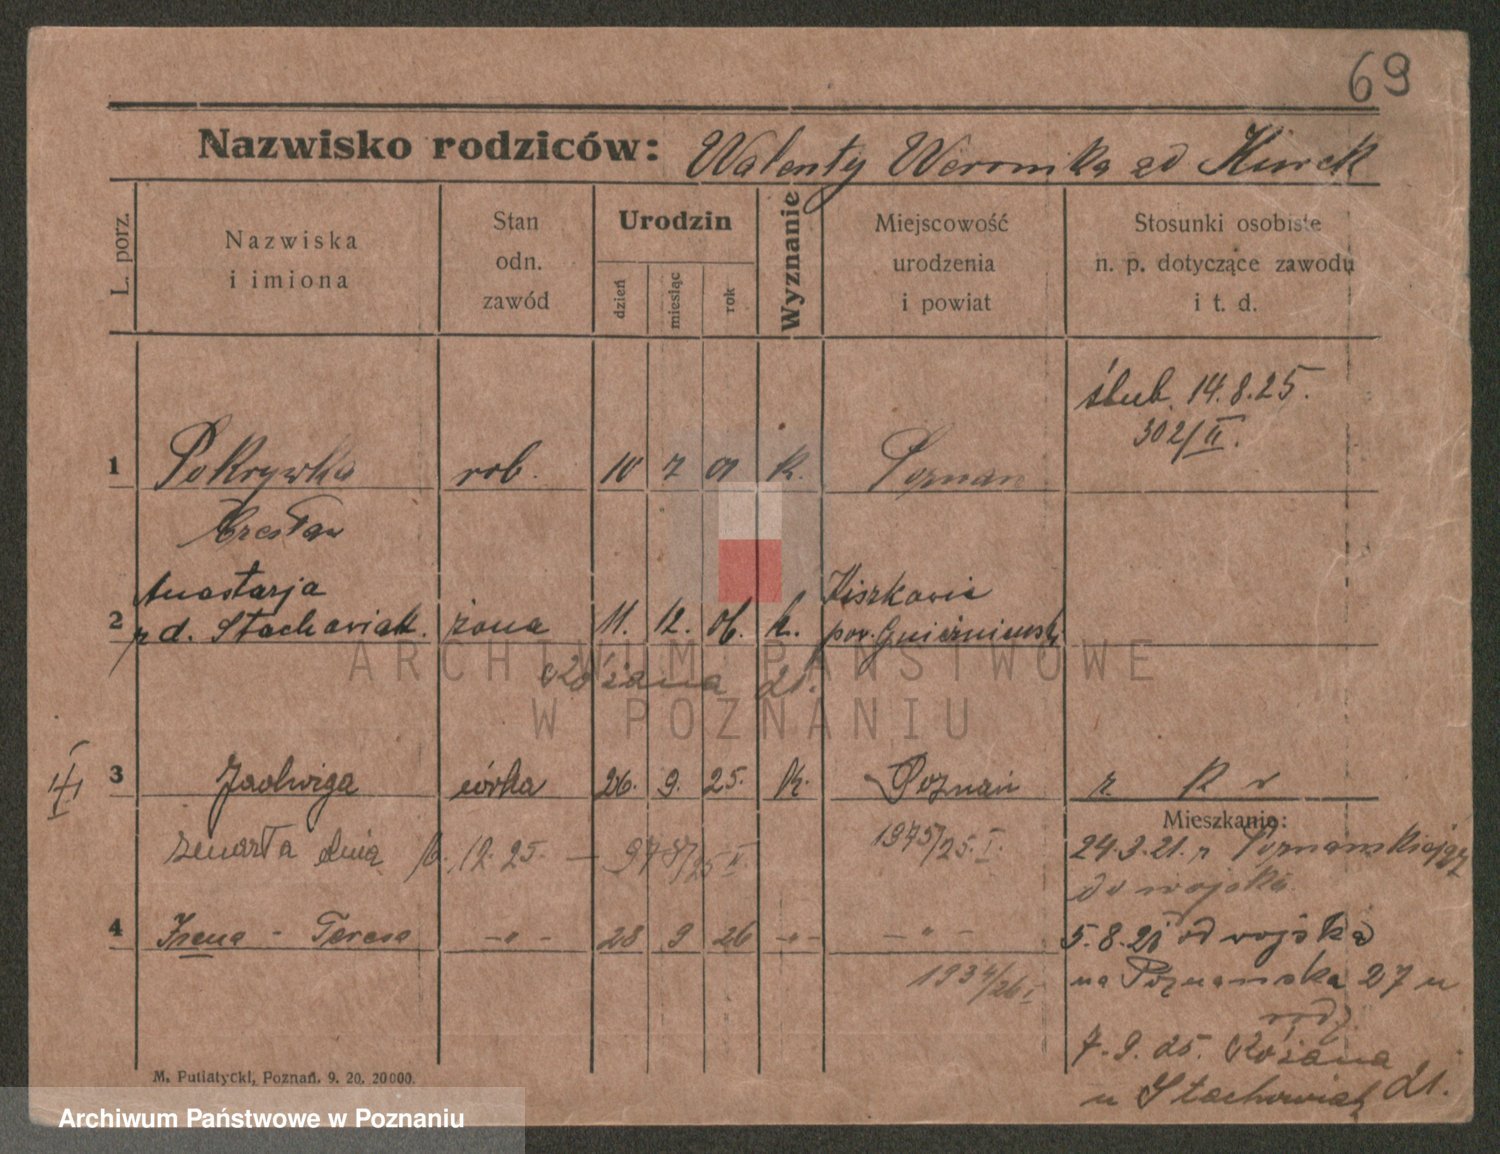 69
Nazwisko rodziców: Walenty Weronika zd Kurek
L. porz.
Nazwiska i imiona
Stan odn. zawód
Urodzin
dzień
miesiąc
rok
Wyznanie
Miejscowość urodzenia i powiat
Stosunki osobiste n. p. dotyczące zawodu i t. d.
ślub. 14.8.25.
302/II.
1 Pokrywka rob. 10 7 01 k. Poznań
Czesław
Anastazja Kiszkowie
2 zd. Stachowiak. żona 11. 12. 06. k. pow. Gnieźnieński
Różana 21.
3 Jadwiga córka 26. 9. 25. k. Poznań r k r
Mieszkanie:
zmarła dnia 6. 12. 25. — 978/25 II 1975/25. I. 24.3.21. z Poznańskiej
do wojska
4 Irena - Teresa -„- 28 9 26 -„- -„- 5.8.21 od wojska
1934/26 I na Poznańska 27 u
rodz
7.9.25. Różana 21.
u Stachowiak
M. Putiatycki, Poznań. 9. 20. 20000.
ARCHIWUM PAŃSTWOWE
W POZNANIU
Archiwum Państwowe w Poznaniu